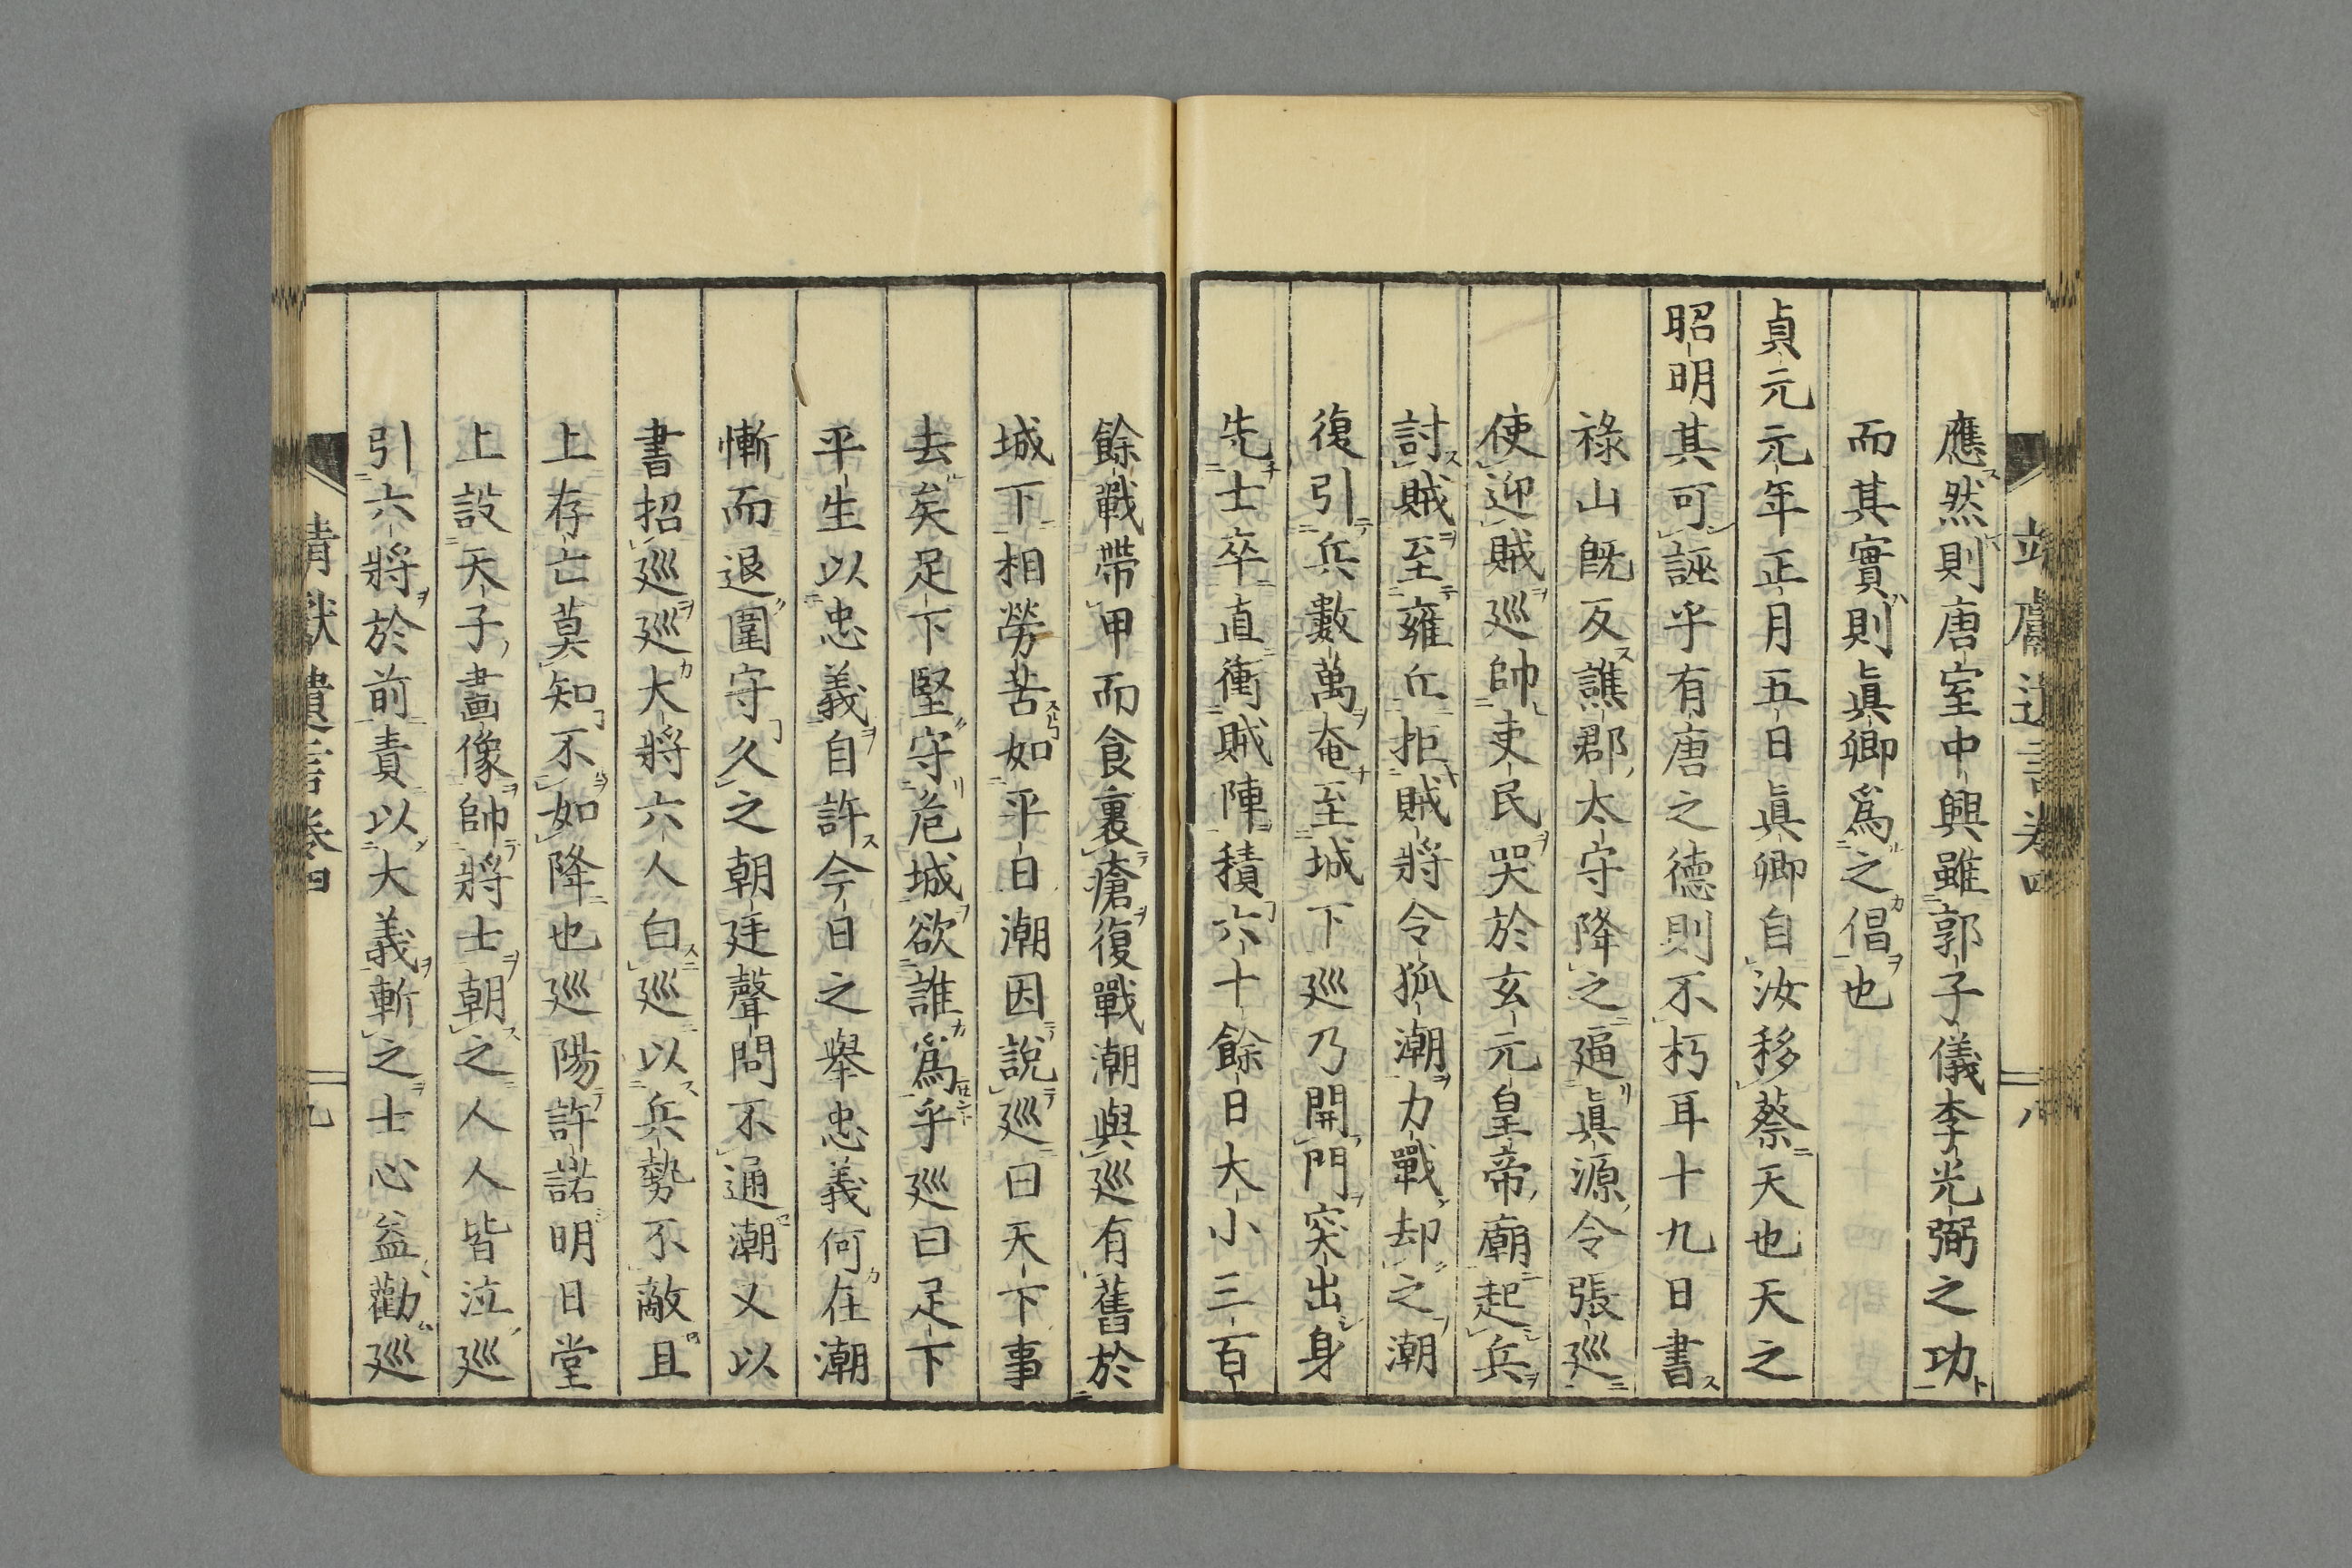 應然則唐室中興雖郭子儀李光弼之功
而其實則眞卿爲之倡也
貞元元年正月五日眞卿自汝移蔡天也天之
昭明其可誣乎有唐之德則不朽耳十九日書
祿山既反譙郡太守降之逼眞源令張巡
使迎賊巡帥吏民哭於玄元皇帝廟起兵
討賊至雍丘拒賊將令狐潮力戰却之潮
復引兵數萬奄至城下巡乃開門突出身
先士卒直衝賊陣積六十餘日大小三百
餘戰帶甲而食裹瘡復戰潮與巡有舊於
城下相勞苦如平日潮因說巡曰天下事
去矣足下堅守危城欲誰爲乎巡曰足下
平生以忠義自許今日之舉忠義何在潮
慚而退圍守久之朝廷聲問不通潮又以
書招巡巡大將六人白巡以兵勢不敵且
上存亡莫知不如降也巡陽許諾明日堂
上設天子畫像帥將士朝之人人皆泣巡
引六將於前責以大義斬之士心益勸巡